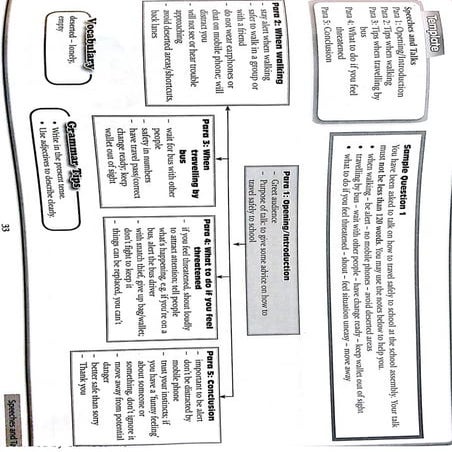 Template
Speeches and Talks
Para 1: Opening/Introduction
Para 2: Tips when walking
Para 3: Tips when travelling by
bus
Para 4: What to do if you feel
threatened
Para 5: Conclusion
Sample Question 1
You have been asked to talk on how to travel safely to school at the school assembly. Your talk
must not be less than 120 words. You may use the notes below to help you.
• when walking – be alert – no mobile phones – avoid deserted areas
• travelling by bus – wait with other people – have change ready – keep wallet out of sight
• what to do if you feel threatened – shout – feel situation uneasy – move away
Para 1: Opening/Introduction
- Greet audience
- Purpose of talk: to give some advice on how to
travel safely to school
Para 2: When walking
- stay alert when walking
- safer to walk in a group or
with a friend
- do not wear earphones or
chat on mobile phone; will
distract you
- will not see or hear trouble
approaching
- avoid deserted areas/shortcuts,
back lanes
Para 3: When
travelling by
bus
- wait for bus with other
people
- safety in numbers
- have travel pass/correct
change ready; keep
wallet out of sight
Para 4: What to do if you feel
threatened
- if you feel threatened, shout loudly
to attract attention; tell people
what's happening, e.g. if you're on a
bus, alert the bus driver
- with snatch thief, give up bag/wallet;
don't fight to keep it
- things can be replaced, you can't
Para 5: Conclusion
- important to be alert
- don't be distracted by
mobile phone
- trust your instincts; if
you have a 'funny feeling'
about someone or
something, don't ignore it
- move away from potential
danger
- better safe than sorry
- Thank you
Vocabulary
deserted – lonely,
empty
Grammar Tips
• Write in the present tense.
• Use adjectives to describe clearly.
33
Speeches and